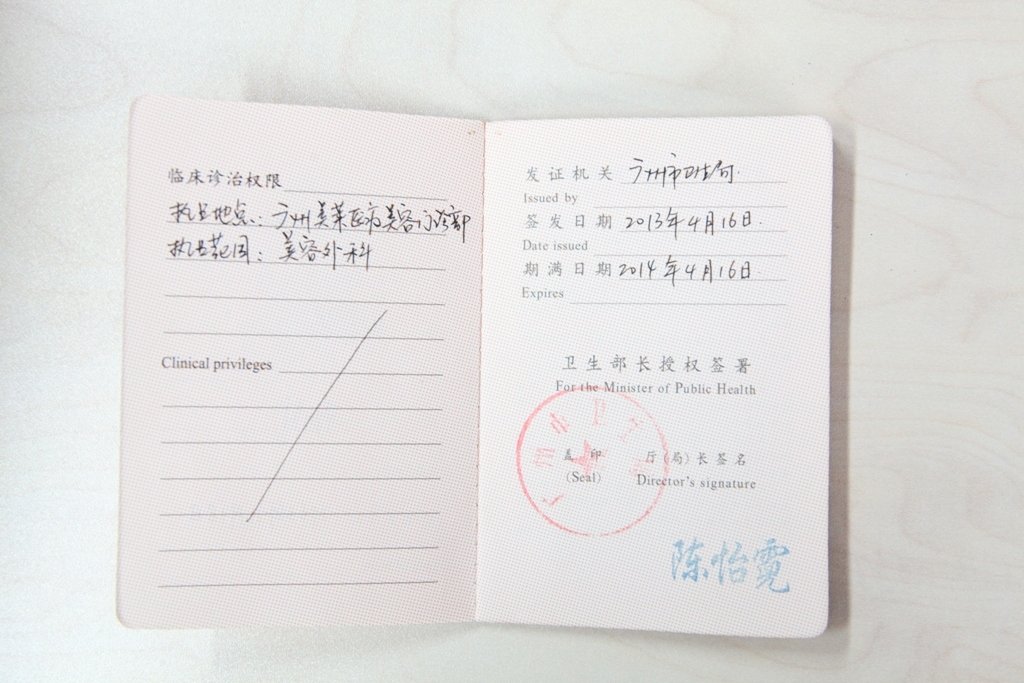 临床诊治权限
执业地点：广州美莱医疗美容门诊部
执业范围：美容外科
Clinical privileges
发证机关 广州市卫生局
Issued by
签发日期 2013年4月16日
Date issued
期满日期 2014年4月16日
Expires
卫生部长授权签署
For the Minister of Public Health
盖印 厅(局)长签名
(Seal) Director's signature
陈怡霓